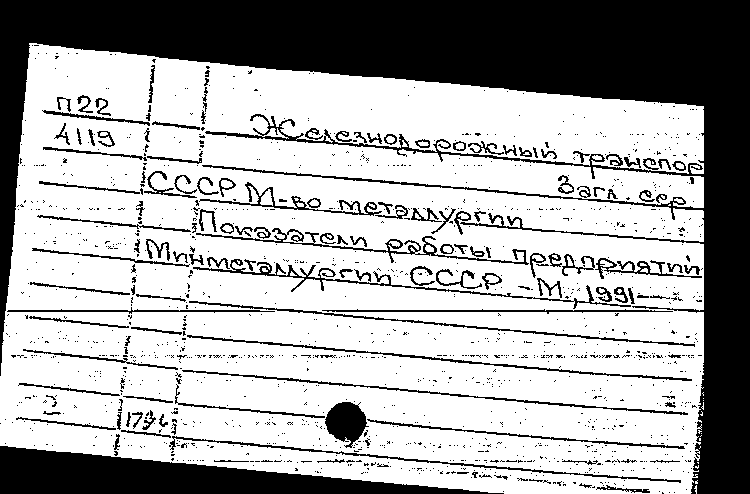 п22
4119
Железнодорожный транспор
Загл. сер
СССР. М-во металлургии
Показатели работы предприятий
Минметаллургии СССР. - М., 1991-